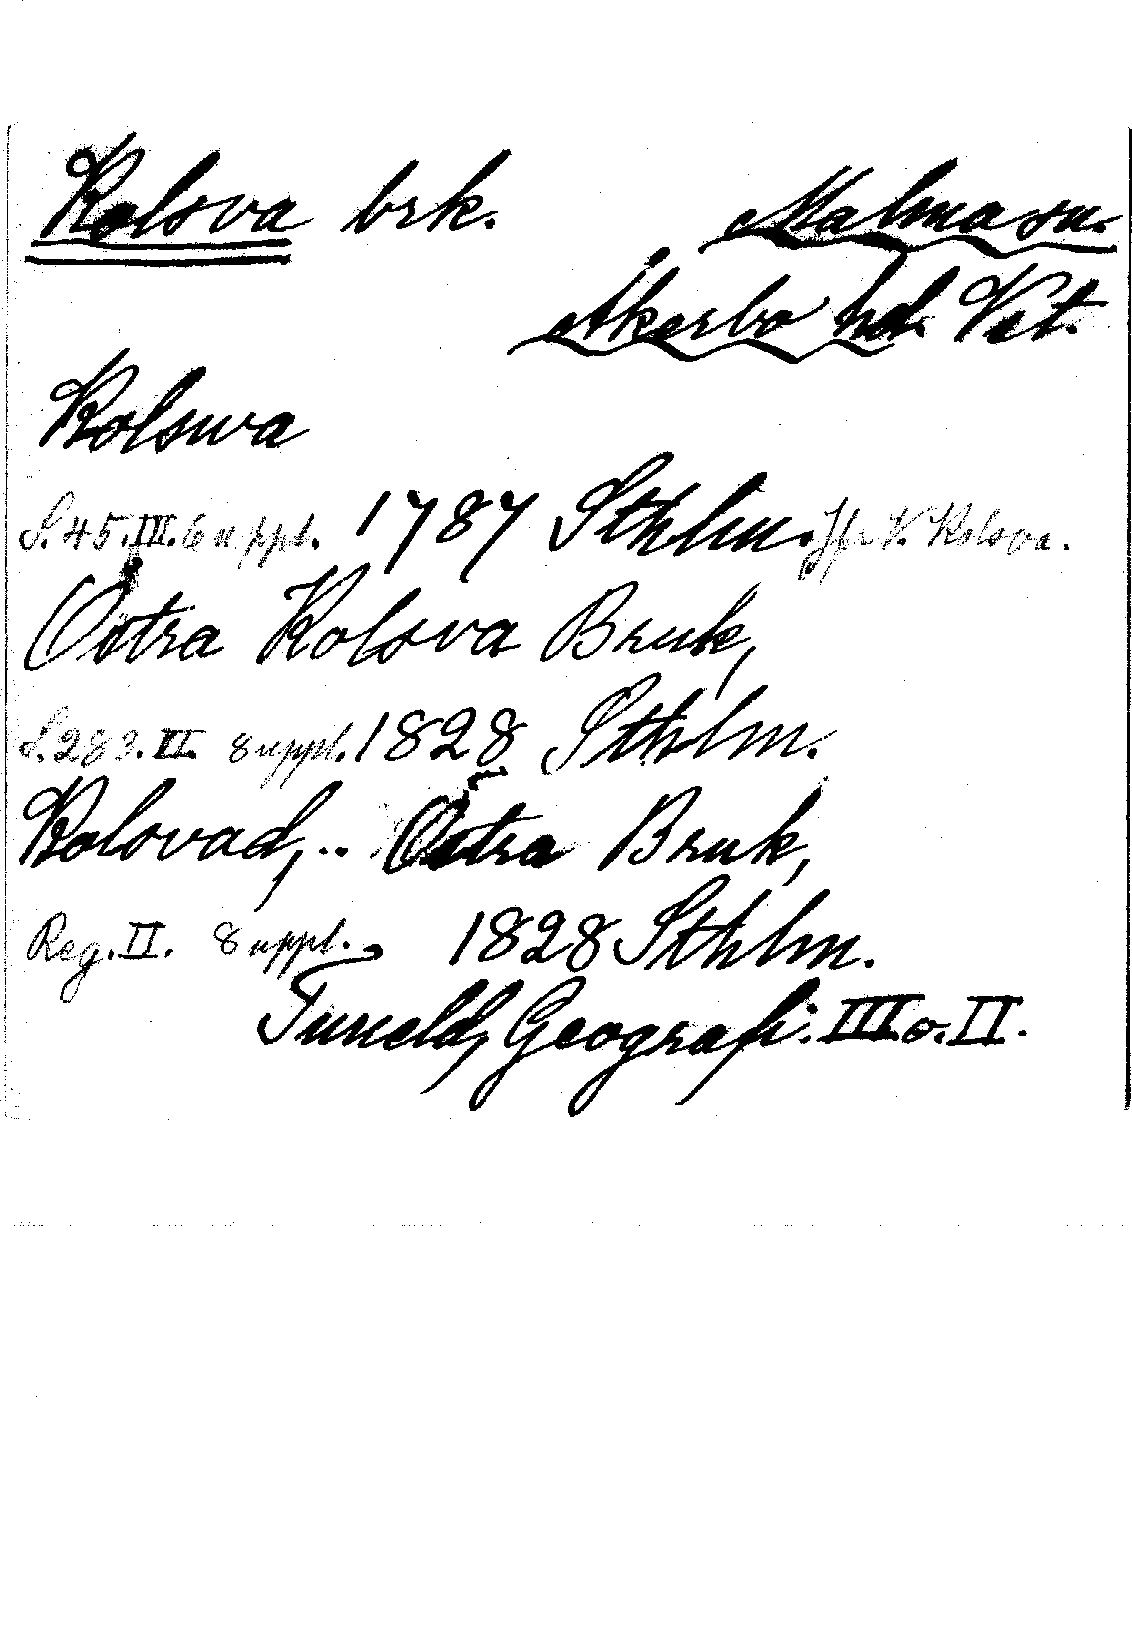 Kolsva brk. Malma sn.
Åkerbo hd. Vst.
Kolswa
S. 45. III. 6 uppl. 1787 Sthlm. Jfr V. Kolsva.
Östra Kolsva Bruk,
S. 283. II. 8 uppl. 1828 Sthlm.
Kolsvad, .. Östra Bruk,
Reg. II. 8 uppl. 1828 Sthlm.
Tuneld, Geografi. III o. II.